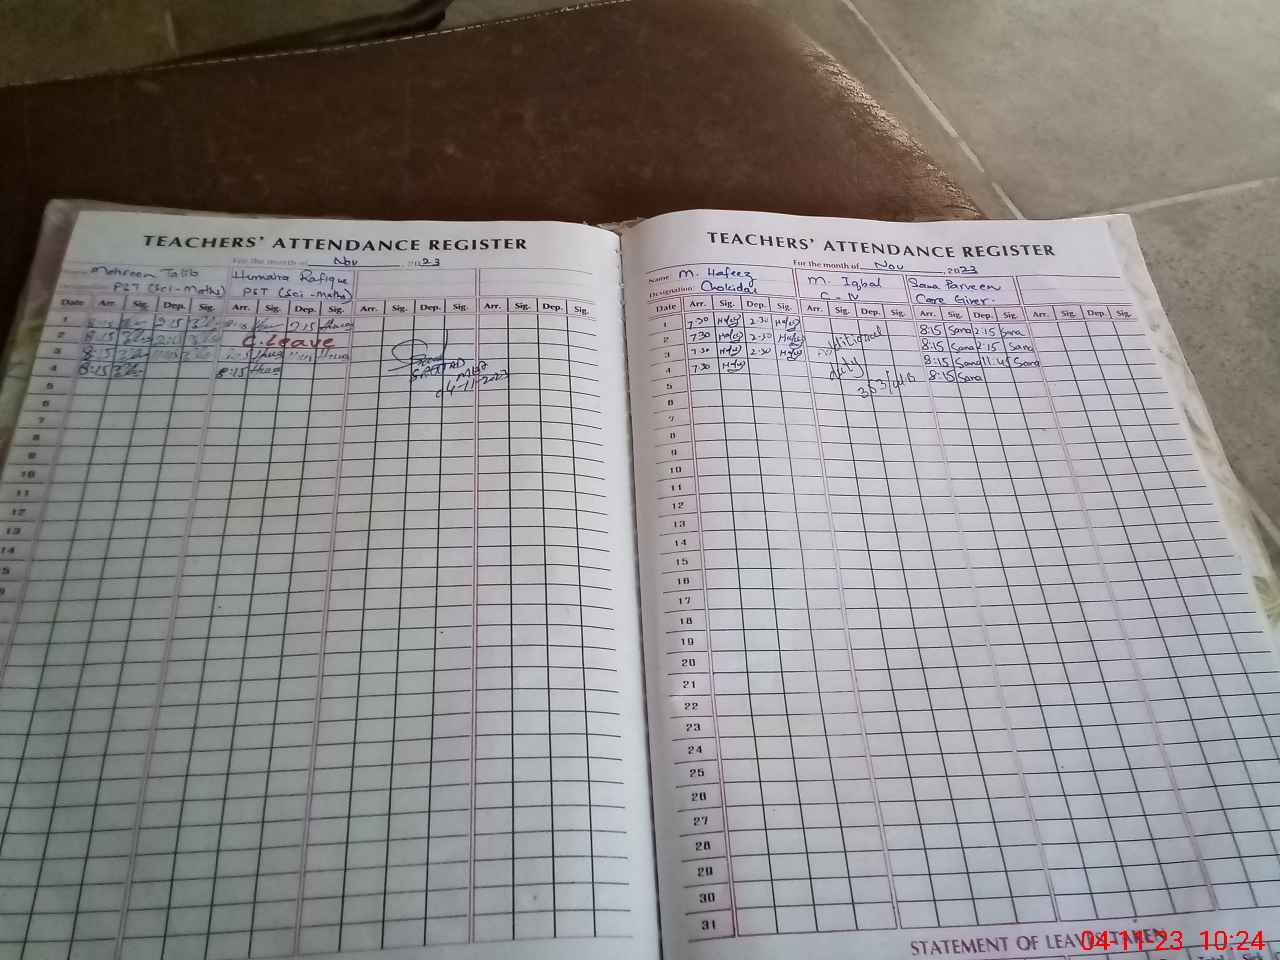 TEACHERS' ATTENDANCE REGISTER
For the month of Nov 2023
Mehreen Talib Humaira Rafique
PST (Sci-Maths) PST (Sci-Maths)
Date Arr. Sig. Dep. Sig. Arr. Sig. Dep. Sig. Arr. Sig. Dep. Sig. Arr. Sig. Dep. Sig.
1 2:15
2 8:15 C.Leave
3 8:15
4 8:15 8:15
4-11-2023
5
6
7
8
9
10
11
12
13
14
TEACHERS' ATTENDANCE REGISTER
For the month of Nov 2023
Name M. Hafeez M. Iqbal Sana Parveen
Designation Chokidar C-IV Care Giver.
Date Arr. Sig. Dep. Sig. Arr. Sig. Dep. Sig. Arr. Sig. Dep. Sig. Arr. Sig. Dep. Sig.
1 7:30 2:30 8:15 Sana 2:15 Sana
2 7:30 2:30 8:15 Sana 2:15 Sana
3 7:30 2:30 duty 8:15 Sana 11:45 Sana
4 7:30 8:15 Sana
5
6
7
8
9
10
11
12
13
14
15
16
17
18
19
20
21
22
23
24
25
26
27
28
29
30
31
STATEMENT OF LEAVES TAKEN
04-11-23 10:24